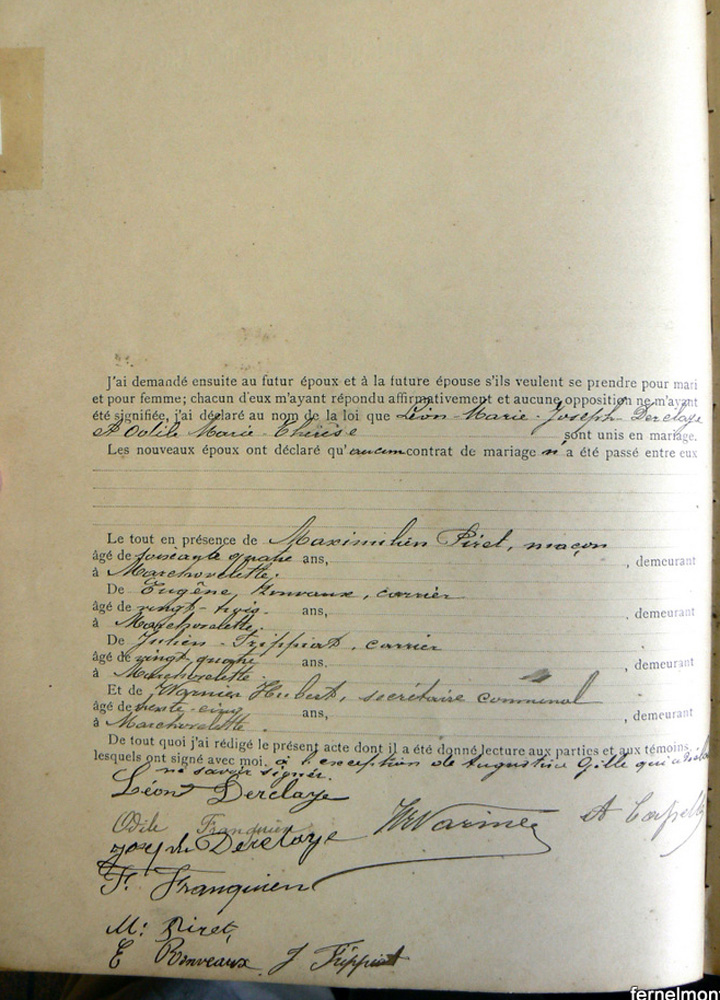 J'ai demandé ensuite au futur époux et à la future épouse s'ils veulent se prendre pour mari
et pour femme; chacun d'eux m'ayant répondu affirmativement et aucune opposition ne m'ayant
été signifiée, j'ai déclaré au nom de la loi que Léon-Marie-Joseph Derclaye
Odile Marie-Thérèse sont unis en mariage.
Les nouveaux époux ont déclaré qu'aucun contrat de mariage n'a été passé entre eux
Le tout en présence de Maximilien Piret, maçon
âgé de soixante quatre ans, , demeurant
à Marchovelette.
De Eugène, Ronvaux, carrier
âgé de vingt-trois ans, , demeurant
à Marchovelette.
De Julien Frippiat, carrier
âgé de vingt quatre ans, , demeurant
à Marchovelette.
Et de Warnier Hubert, secrétaire communal
âgé de trente-cinq ans, , demeurant
à Marchovelette
De tout quoi j'ai rédigé le présent acte dont il a été donné lecture aux parties et aux témoins,
lesquels ont signé avec moi, à l'exception de Augustine Gille qui a
ne savoir signer.
Léon Derclaye
Odile Franquien
Derclaye
F. Franquien
M: Piret,
E Ronveaux J Frippiat
fernelmon